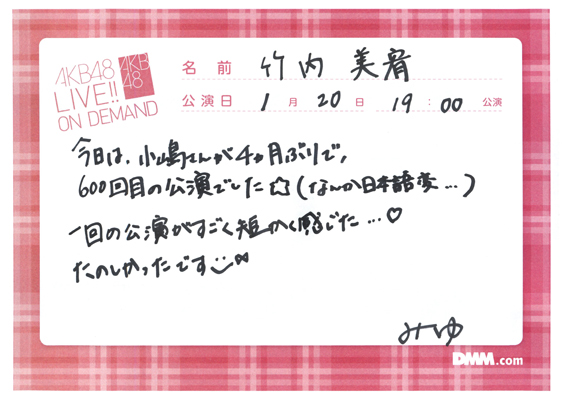 AKB48
LIVE!!
ON DEMAND
AKB
48
名前 竹内 美宥
公演日 1月20日 19:00公演
今日は、小嶋さんが4ヶ月ぶりで、
600回目の公演でした☆(なんか日本語変…)
一回の公演がすごく短かく感じた…♡
たのしかったです
みゆ
DMM.com